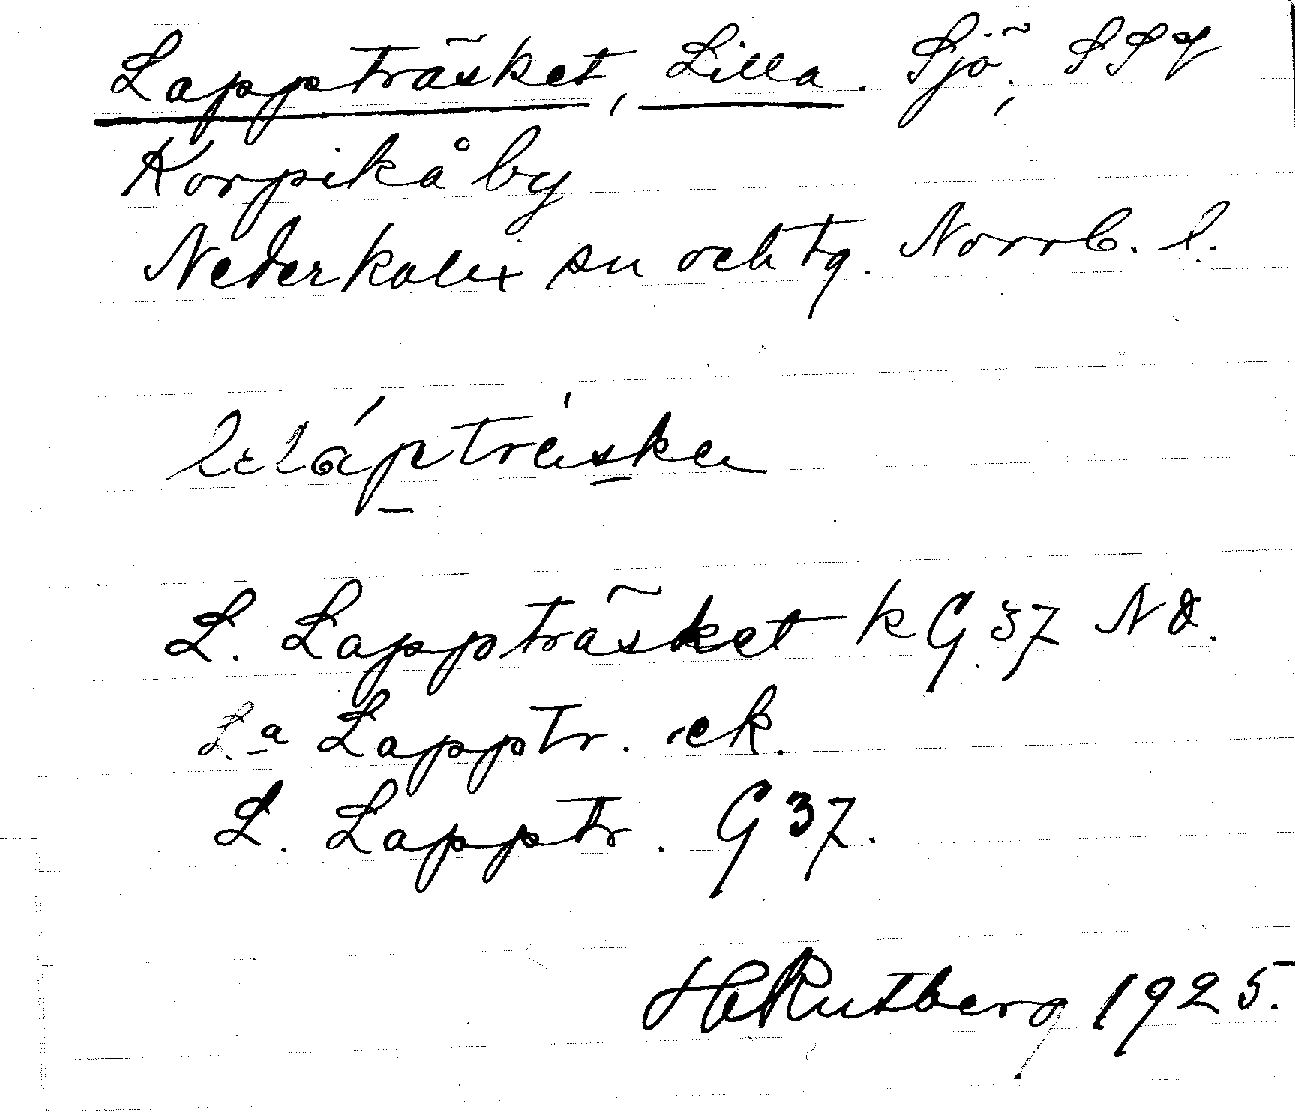 Lappträsket, Lilla. Sjö, SSV
Korpikå by
Nederkalix sn och tg. Norrb. l.
L. Lappträsket k G 37 NO.
La Lapptr. ek.
L. Lapptr. G 37.
H Rutberg 1925.